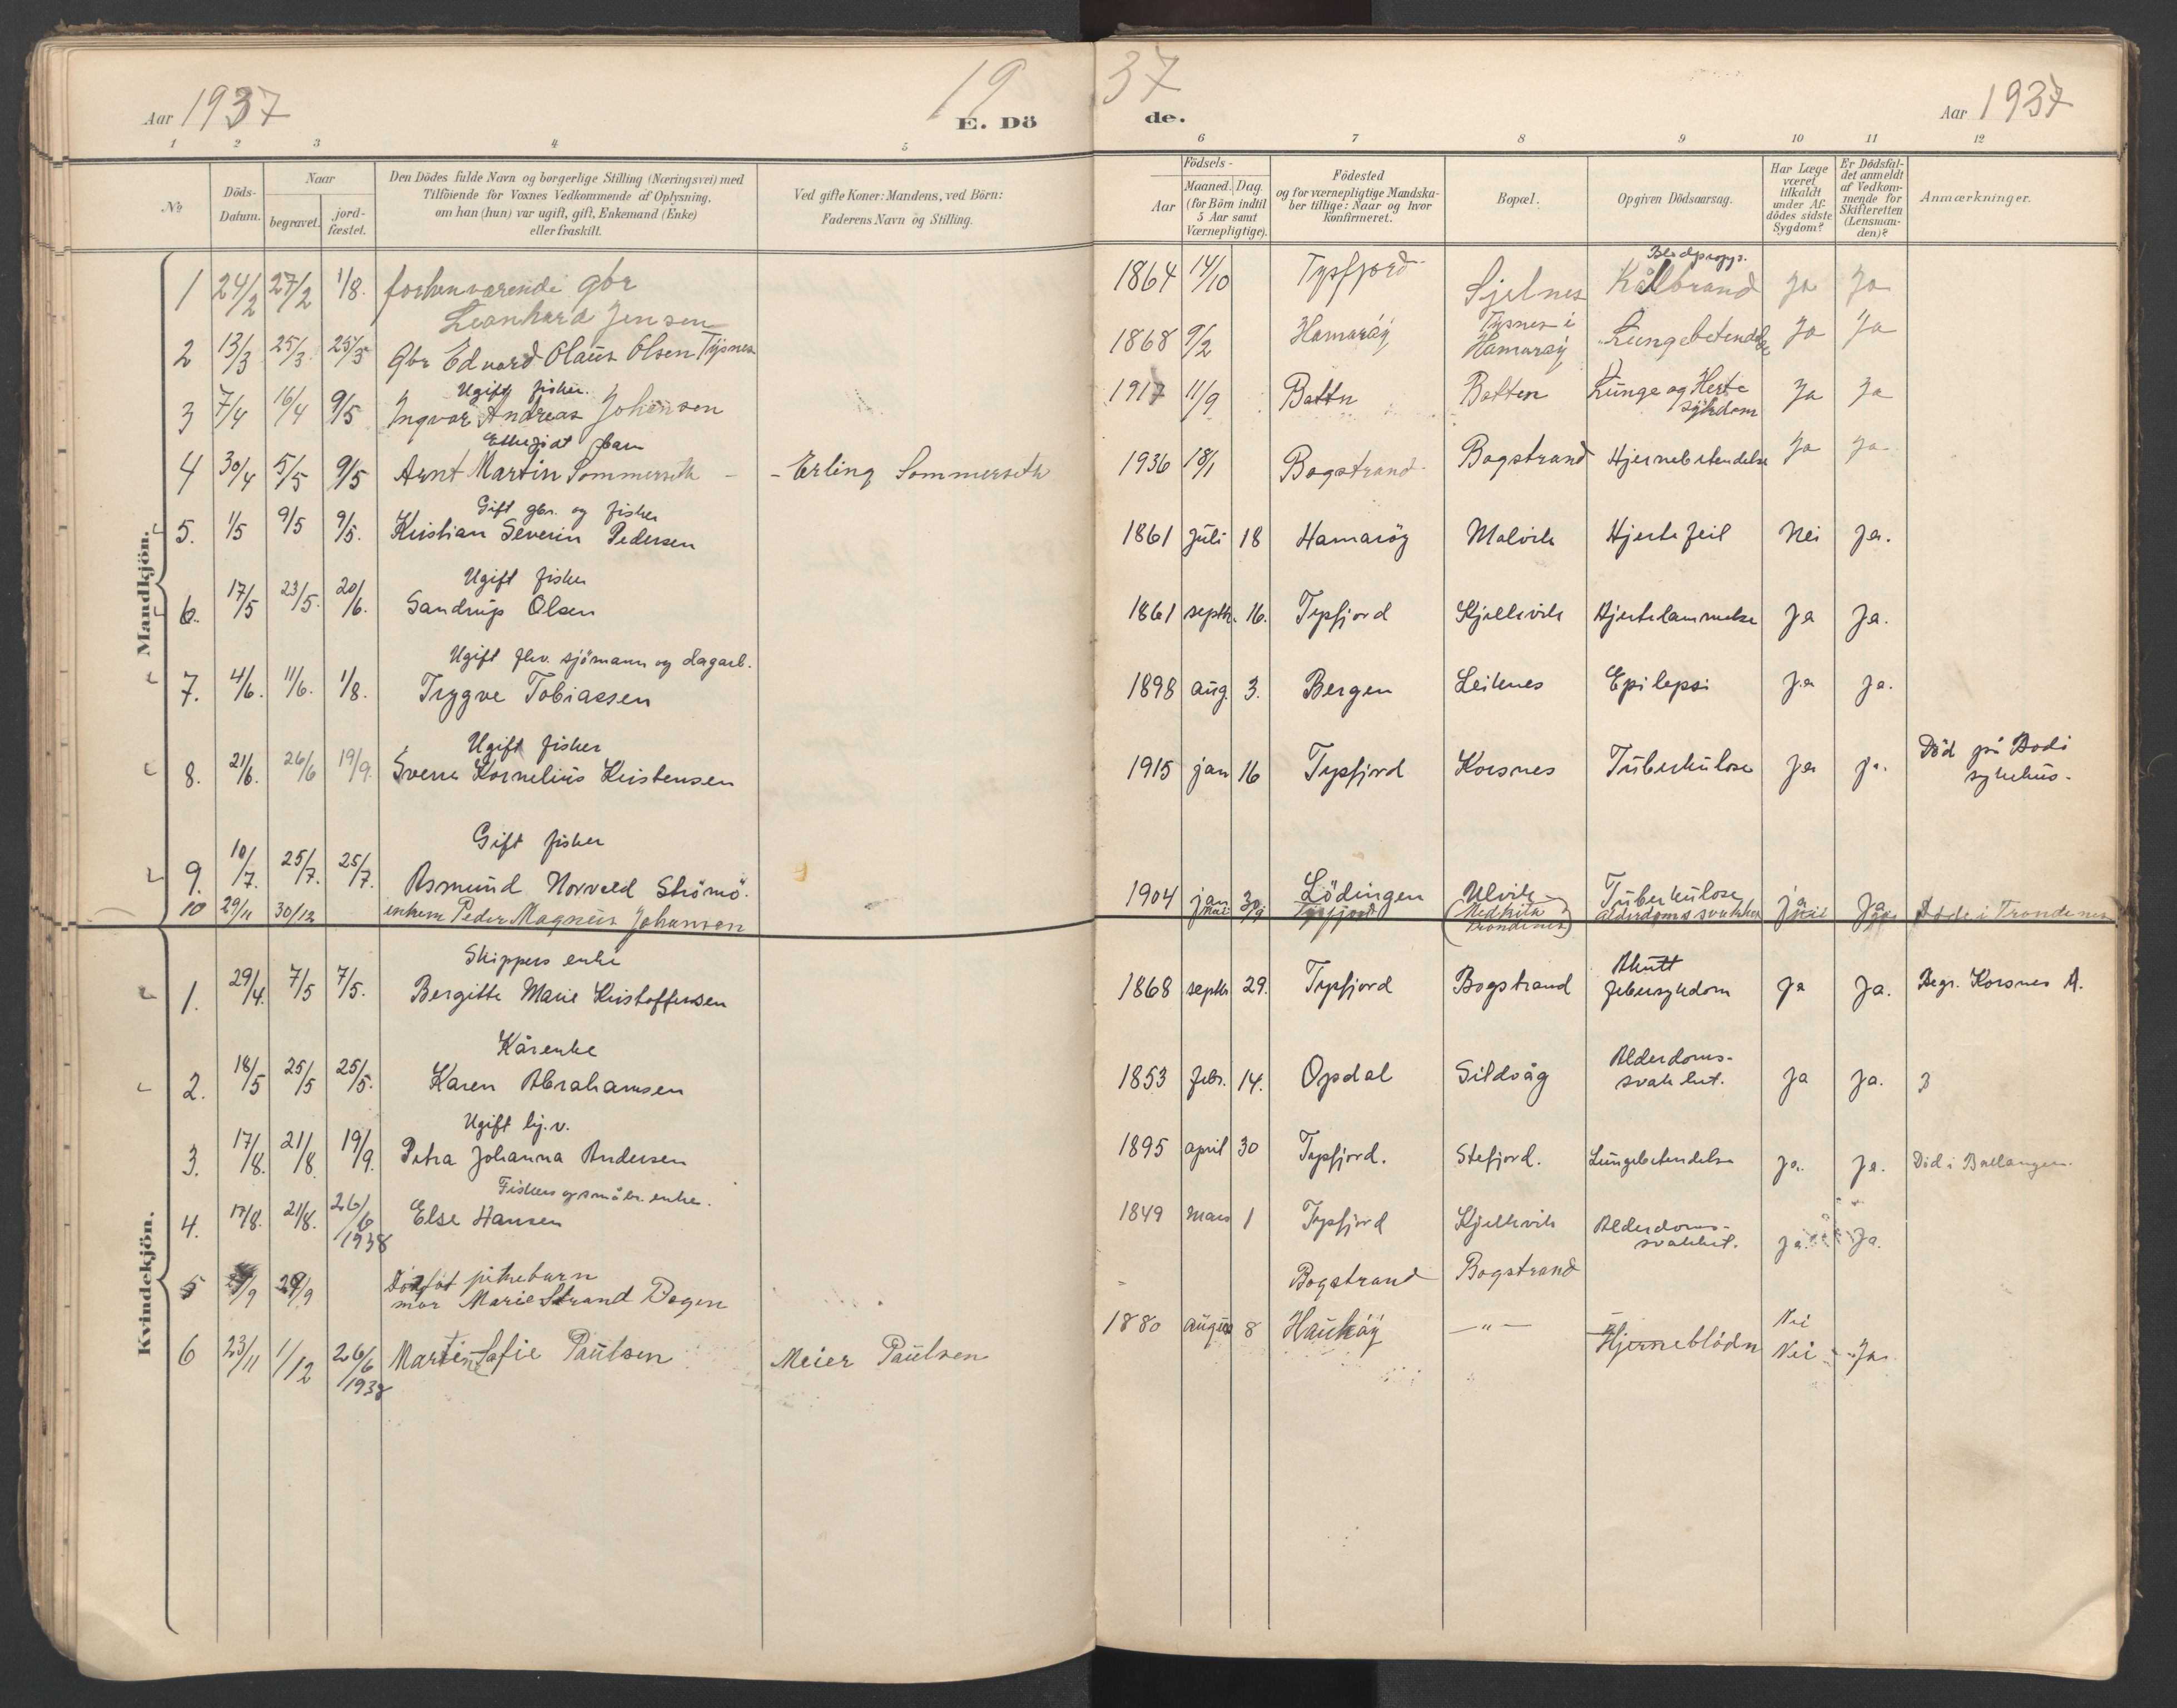 Aar 1937
19
37
E. Dö
de.
Aar 1937
1 2 3 4 5 6 7 8 9 10 11 12
№
Döds-Datum.
Naar
begravet.
jord-fæstet.
Den Dödes fulde Navn og borgerlige Stilling (Næringsvei) med
Tilföiende for Voxnes Vedkommende af Oplysning,
om han (hun) var ugift, gift, Enkemand (Enke)
eller fraskilt.
Ved gifte Koner: Mandens, ved Börn:
Faderens Navn og Stilling.
Födsels-
Aar
Maaned. Dag.
(for Börn indtil
5 Aar samt
Værnepligtige).
Födested
og for værnepligtige Mandska-
ber tillige: Naar og hvor
konfirmeret.
Bopæl.
Opgiven Dödsaarsag.
Har Læge
været
tilkaldt
under Af-
dödes sidste
Sygdom?
Er Dödsfal-
det anmeldt
af Vedkom-
mende for
Skifteretten
(Lensman-
den)?
Anmærkninger.
Mandkjön.
1 24/2 27/2 1/8. forhenværende gbr
Leonhard Jensen
1864 14/10 Tysfjord Sjelnes Blodpropp. Kålbrand Ja Ja
2 13/3 25/3 25/3 Gbr Edvard Olaus Olsen Tysnes
1868 9/2 Hamarøy Tysnes i Hamarøy Lungebetendelse Ja Ja
Ugift fisker
3 7/4 16/4 9/5 Ingvar Andreas Johansen
1917 11/9 Botten Lunge og Hertesykdom Ja Ja
Ektefødt barn
4 30/4 5/5 9/5 Arnt Martin Sommerseth - - Erling Sommerseth
1936 18/1 Bogstrand Bogstrand Hjernebetendelse Ja Ja
Gift gbr. og fisker
5. 1/5 9/5 9/5. Kristian Severin Pedersen
1861 juli 18 Hamarøy Malvik Hjertefeil Nei Ja.
Ugift fisker
6. 17/5 23/5. 20/6. Sandrup Olsen
1861 septb. 16. Tysfjord Kjelkvik Hjertelammelse Ja Ja.
Ugift fhv. sjömann og dagarb.
7. 4/6. 11/6. 1/8. Trygve Tobiassen
1898 aug. 3. Bergen Leiknes Epilepsi Ja Ja.
Ugift fisker
8. 21/6. 26/6 19/9. Sverre Kornelius Kristensen
1915 jan 16 Tysfjord Korsnes Tuberkulose Ja ja. Död på Bodö
sykehus.
Gift fisker
9. 10/7. 25/7. 25/7. Asmund Norvald Strömö.
1904 jan 30. Lödingen Ulvik Tuberkulose ja Ja
10 29/11 30/12 enkem Peder Magnus Johansen
Tysfjord alderdomssvakhet Döde i Trondenes
Kvindekjön.
Skippers enke
1. 29/4. 7/5 7/5. Bergitte Marie Kristoffersen
1868 septb 29. Tysfjord Bogstrand Akutt
febersykdom Ja Ja. Begr. Korsnes A.
Kårenke
2. 18/5 25/5 25/5. Karen Abrahamsen
1853 febr. 14. Opdal Sildvåg Alderdoms-
svakhet. Ja Ja.
Ugift hj.v.
3. 17/8. 21/8. 19/9. Petra Johanna Andersen
1895 april 30 Tysfjord. Stefjord. Lungebetendelse Ja. Ja. Död i Ballangen.
Fiskers og småbr. enke.
4. 17/8. 21/8. 26/6 1938 Else Hansen
1849 mars 1 Tysfjord Kjelkvik Alderdoms-
svakhet. Ja. Ja.
5 29/9 Dödföt pikebarn
mor Marie Strand Bogen
Bogstrand Bogstrand
Nei
6 23/11 1/12 26/6 1938 Martine Sofie Paulsen Meier Paulsen
1880 august 8 Haukøy -"- Hjerneblödn Nei Ja.